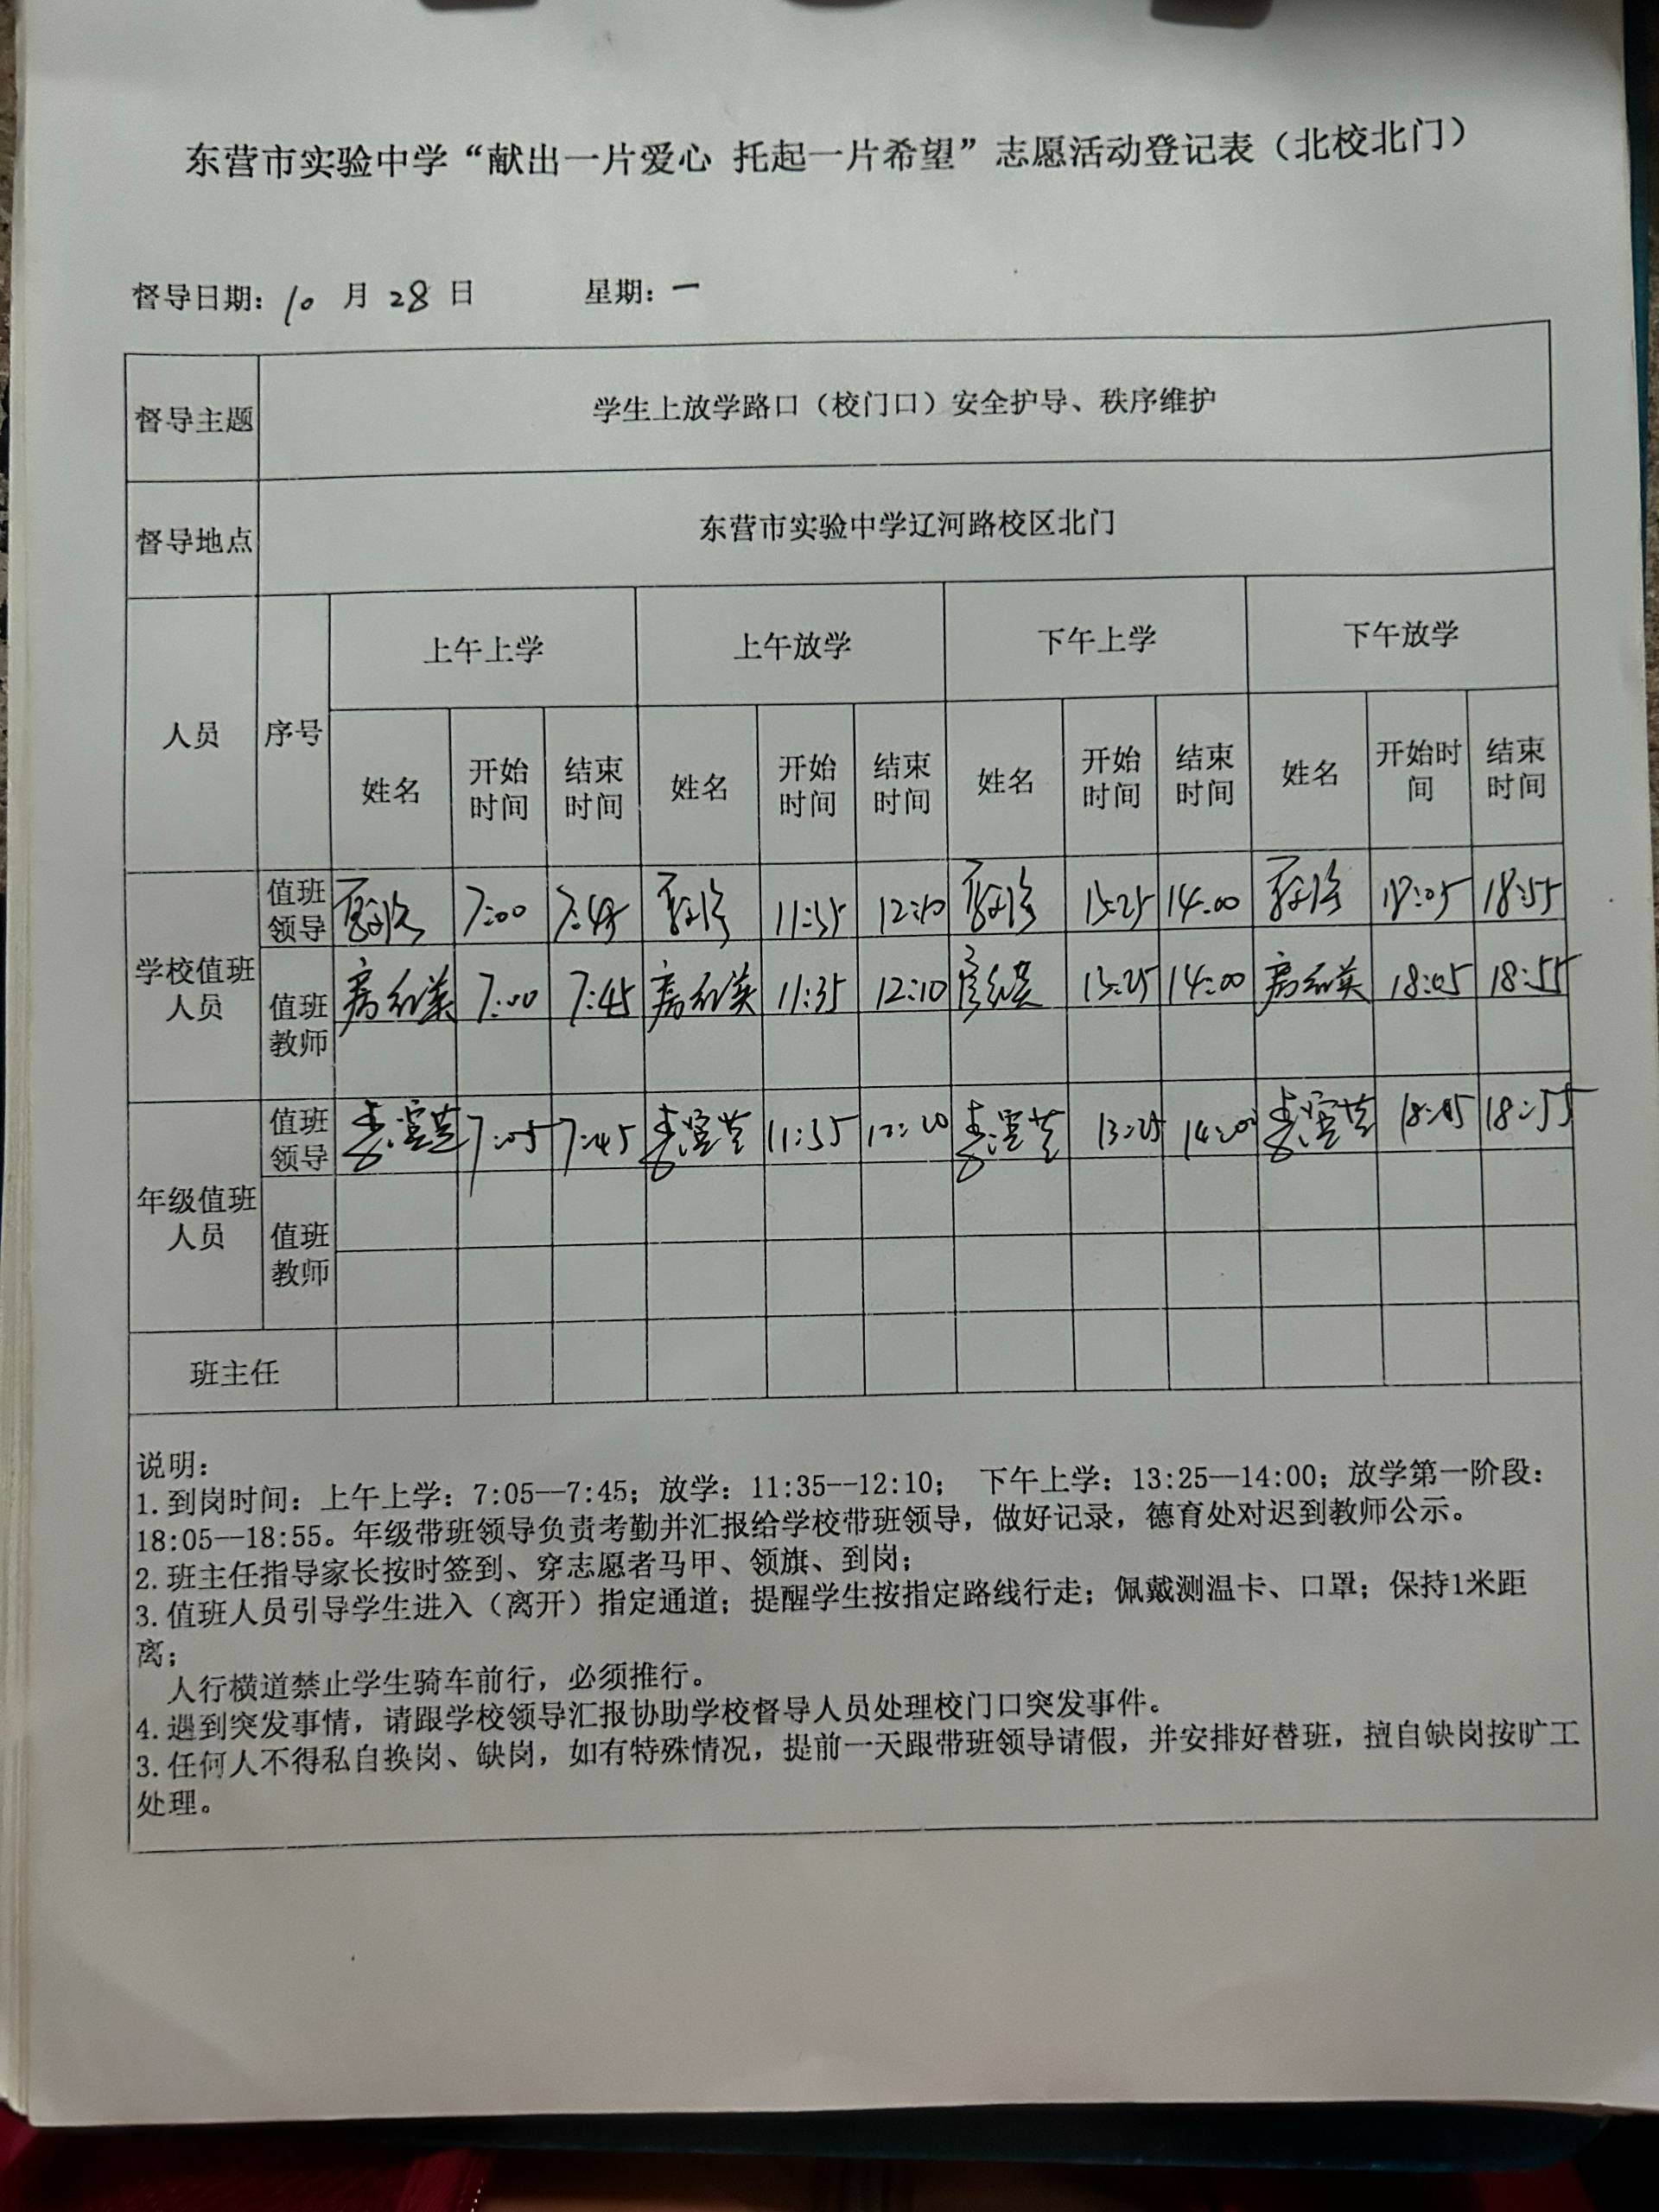 东营市实验中学“献出一片爱心 托起一片希望”志愿活动登记表（北校北门）
督导日期: 10 月 28 日 星期: 一
督导主题 学生上放学路口（校门口）安全护导、秩序维护
督导地点 东营市实验中学辽河路校区北门
人员 序号 上午上学 上午放学 下午上学 下午放学
姓名 开始时间 结束时间 姓名 开始时间 结束时间 姓名 开始时间 结束时间 姓名 开始时间 结束时间
学校值班人员
值班领导 7:00 7:45 11:35 12:10 13:25 14:00 18:05 18:55
值班教师 7:00 7:45 11:35 12:10 13:25 14:00 18:05 18:55
年级值班人员
值班领导 7:05 7:45 11:35 13:25 14:00 18:05 18:55
值班教师
班主任
说明:
1.到岗时间: 上午上学: 7:05—7:45; 放学: 11:35—12:10; 下午上学: 13:25—14:00; 放学第一阶段:
18:05—18:55。年级带班领导负责考勤并汇报给学校带班领导，做好记录，德育处对迟到教师公示。
2.班主任指导家长按时签到、穿志愿者马甲、领旗、到岗;
3.值班人员引导学生进入（离开）指定通道; 提醒学生按指定路线行走; 佩戴测温卡、口罩; 保持1米距
离;
人行横道禁止学生骑车前行，必须推行。
4.遇到突发事情，请跟学校领导汇报协助学校督导人员处理校门口突发事件。
3.任何人不得私自换岗、缺岗，如有特殊情况，提前一天跟带班领导请假，并安排好替班，擅自缺岗按旷工
处理。